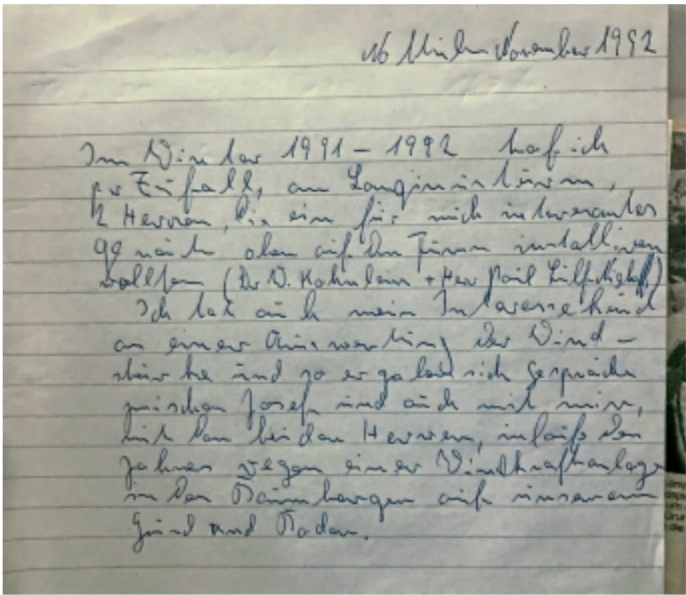 November 1992
Im Winter 1991 - 1992 traf ich
per Zufall, am Longinusturm,
2 Herren, die ein für mich interesantes
nach oben auf den Turm installieren
wollten (Dr. D. + Herr
Ich tat auch mein Interesse kund
an einer Auswertung der Wind -
stärke und so ergaben sich Gespräche
zwischen Josef und auch mit mir,
mit den beiden Herren, inlaufe den
Jahren wegen einer Windkraftanlage
in den Baumbergen auf unserem
Grund und Boden.